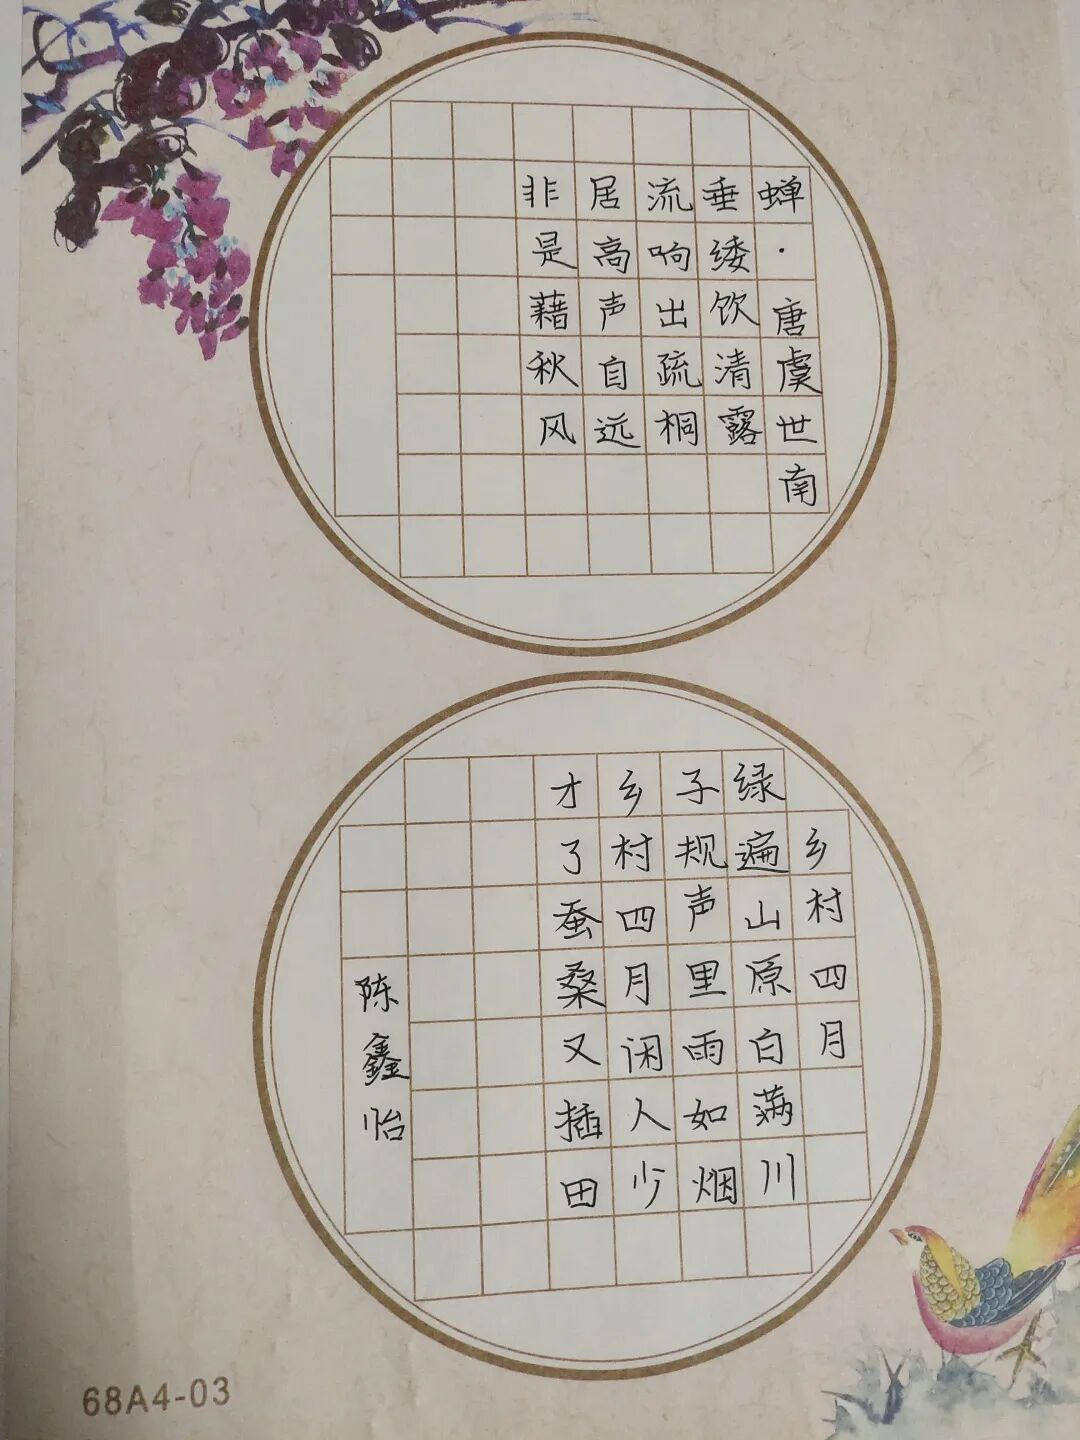 蝉·唐虞世南
垂緌饮清露
流响出疏桐
居高声自远
非是藉秋风
乡村四月
绿遍山原白满川
子规声里雨如烟
乡村四月闲人少
才了蚕桑又插田
陈鑫怡
68A4-03